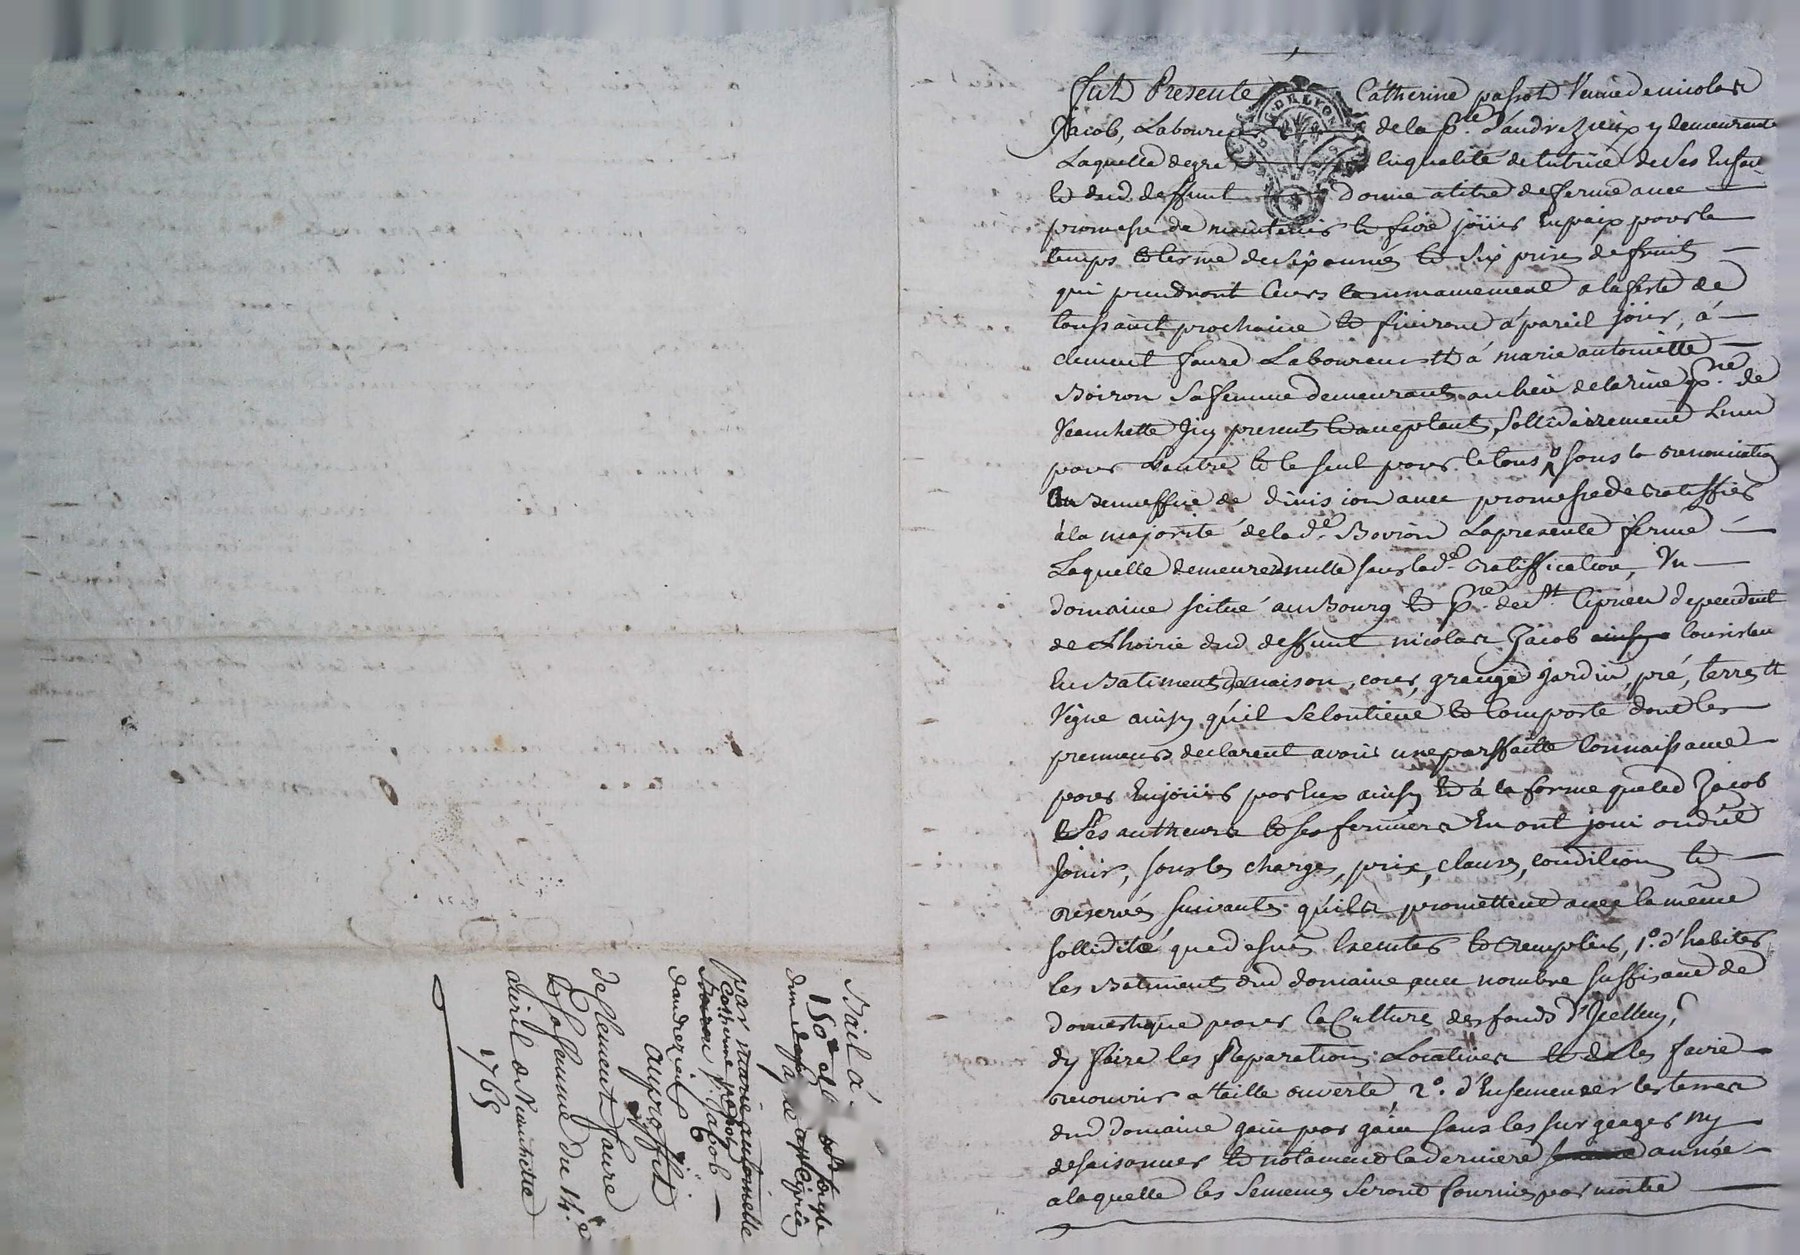 Fut Presente Catherine passot Veuve de nicolas
Jacob, Laboureur de la p.re d'andrezieux y demeurante
Laquelle de gre en qualité de tutrice de ses Enfans
et dud. deffunt donne a titre de ferme avec
promesse de maintenir et faire joüir En paix pour le
temps et terme de six années et six prises de fruits
qui prendront Cours a la feste de
toussaint prochaine et finiront a pareil jour, á
clement faure Laboureur et á marie antoinette
Boiron sa femme demeurants au lieu de la rive p.re de
Veauchette Icy presents et acceptants, sollidairement L'un
pour L'autre et le seul pour le tout sous la renonciation
au Beneffice de division avec promesse de ratiffier
á la majorité de lad.e Boiron La presente ferme
Laquelle demeurera nulle sans lad.e ratiffication, Un
domaine scitué au Bourg et p.re de St Ciprien dependant
de L'hoirie dud deffunt nicolas Jacob consistan
En Batiments de maison, cour, grange jardin, pré, terres et
Vigne ainsy qu'il se contient et comporte dont les
preneurs declarent avoir une parffaitte Connaissance
pour En joüir par Eux ainsy et á la forme que led Jacob
et ses autheurs et ses fermiers En ont joui ou dû
Jouir, sous les charges, prix, clauses, conditions et
reserves suivantes qu'ils promettent avec la même
sollidité que dessus Executer et remplir, 1.o d'habiter
les Batiments dud domaine avec nombre suffisant de
domestique pour la Culture des fonds d'Icelluy,
dy faire les Reparations Locatives et de les faire
recouvrir a taille ouverte, 2.o d'Ensemencer les terres
dud domaine gain par gain sans les surgeager ny
desaisonner et notament la derniere année
a laquelle les semences seront fournies par moitié
Bail á
150
d'un
par marie antoinette
Catherine passot
Boiron v. Jacob
dandrezieux
au proffit
de Clement faure
et sa femme du 14.e
avril de Veauchette
1765